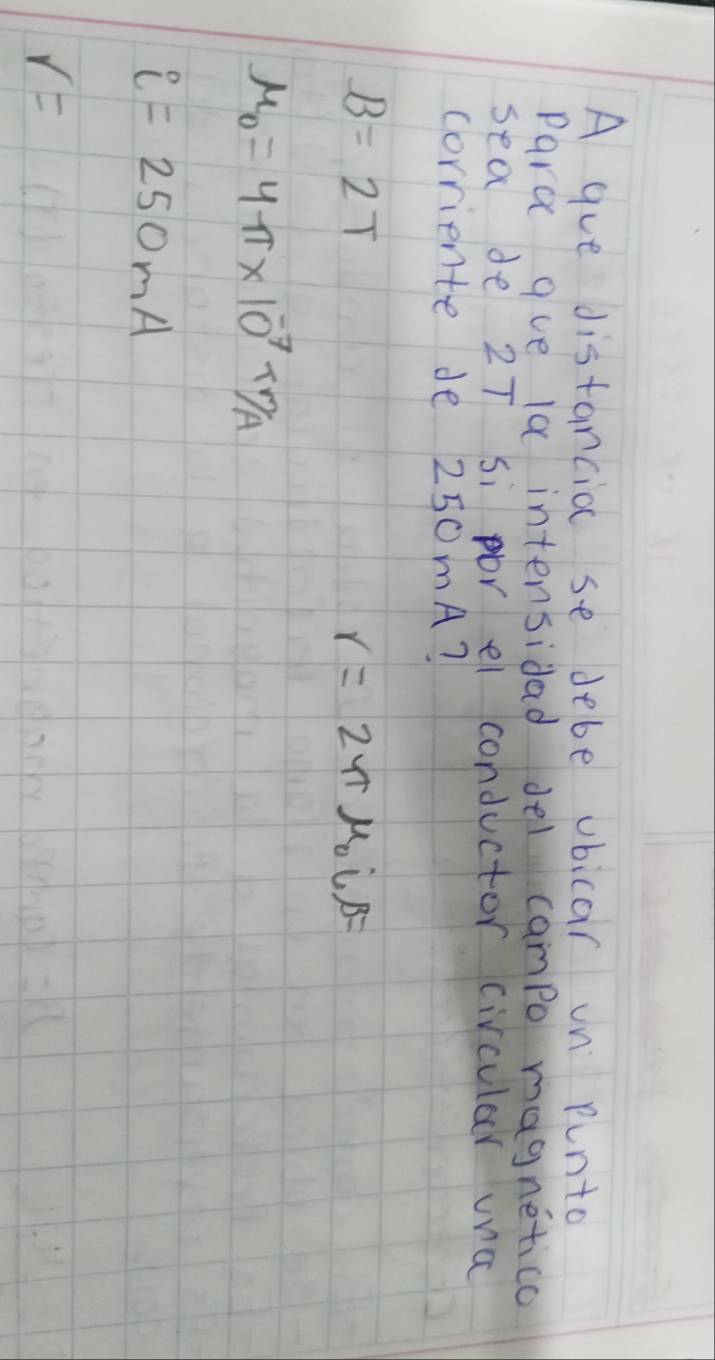 A que distancia se debe ubicar un punto
para que la intensidad del campo magnético
sea de 2T si por el conductor circular una
corriente de 250mA?
B= 2T
r= 2π μ₀ i B=
μ₀= 4π×10⁻⁷ Tm/A
i= 250mA
r=